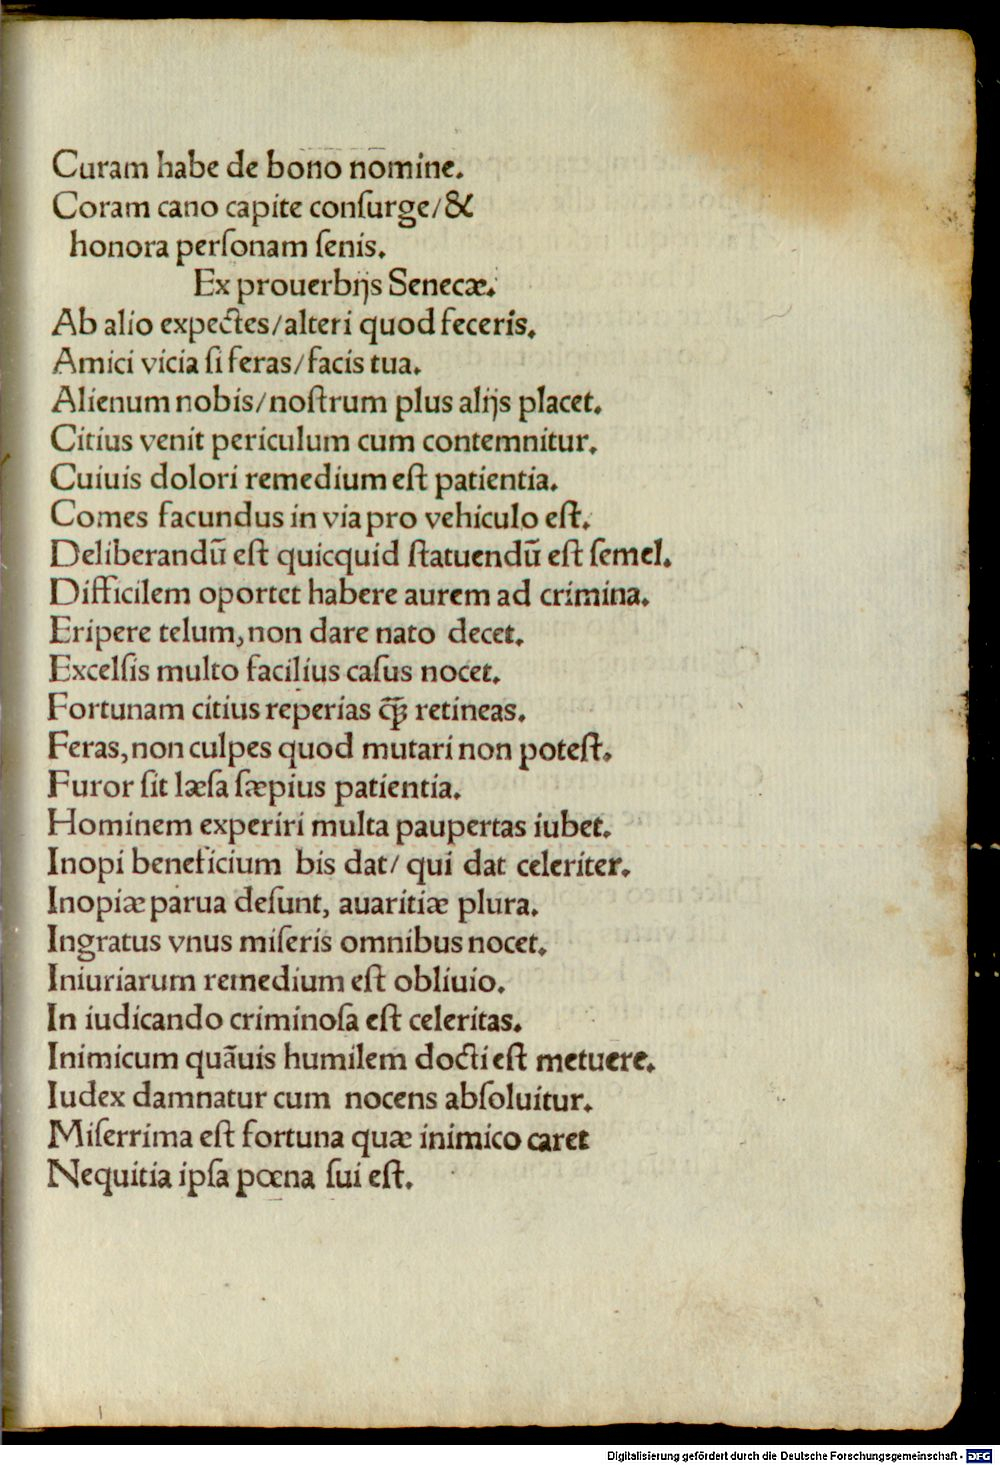 Curam habe de bono nomine.
Coram cano capite conſurge/ &
honora perſonam ſenis.
Ex prouerbijs Senecæ.
Ab alio expectes/alteri quod feceris.
Amici vicia ſi feras/facis tua.
Alienum nobis/noſtrum plus alijs placet.
Citius venit periculum cum contemnitur.
Cuiuis dolori remedium eſt patientia.
Comes facundus in via pro vehiculo eſt.
Deliberandū eſt quicquid ſtatuendū eſt ſemel.
Difficilem oportet habere aurem ad crimina.
Eripere telum, non dare nato decet.
Excelſis multo facilius caſus nocet.
Fortunam citius reperias q̄ꝫ retineas.
Feras, non culpes quod mutari non poteſt.
Furor fit læſa ſæpius patientia.
Hominem experiri multa paupertas iubet.
Inopi beneficium bis dat/ qui dat celeriter.
Inopiæ parua deſunt, auaritiæ plura.
Ingratus vnus miſeris omnibus nocet.
Iniuriarum remedium eſt obliuio.
In iudicando criminoſa eſt celeritas.
Inimicum quāuis humilem docti eſt metuere.
Iudex damnatur cum nocens abſoluitur.
Miſerrima eſt fortuna quæ inimico caret
Nequitia ipſa pœna ſui eſt.
Digitalisierung gefördert durch die Deutsche Forschungsgemeinschaft - DFG